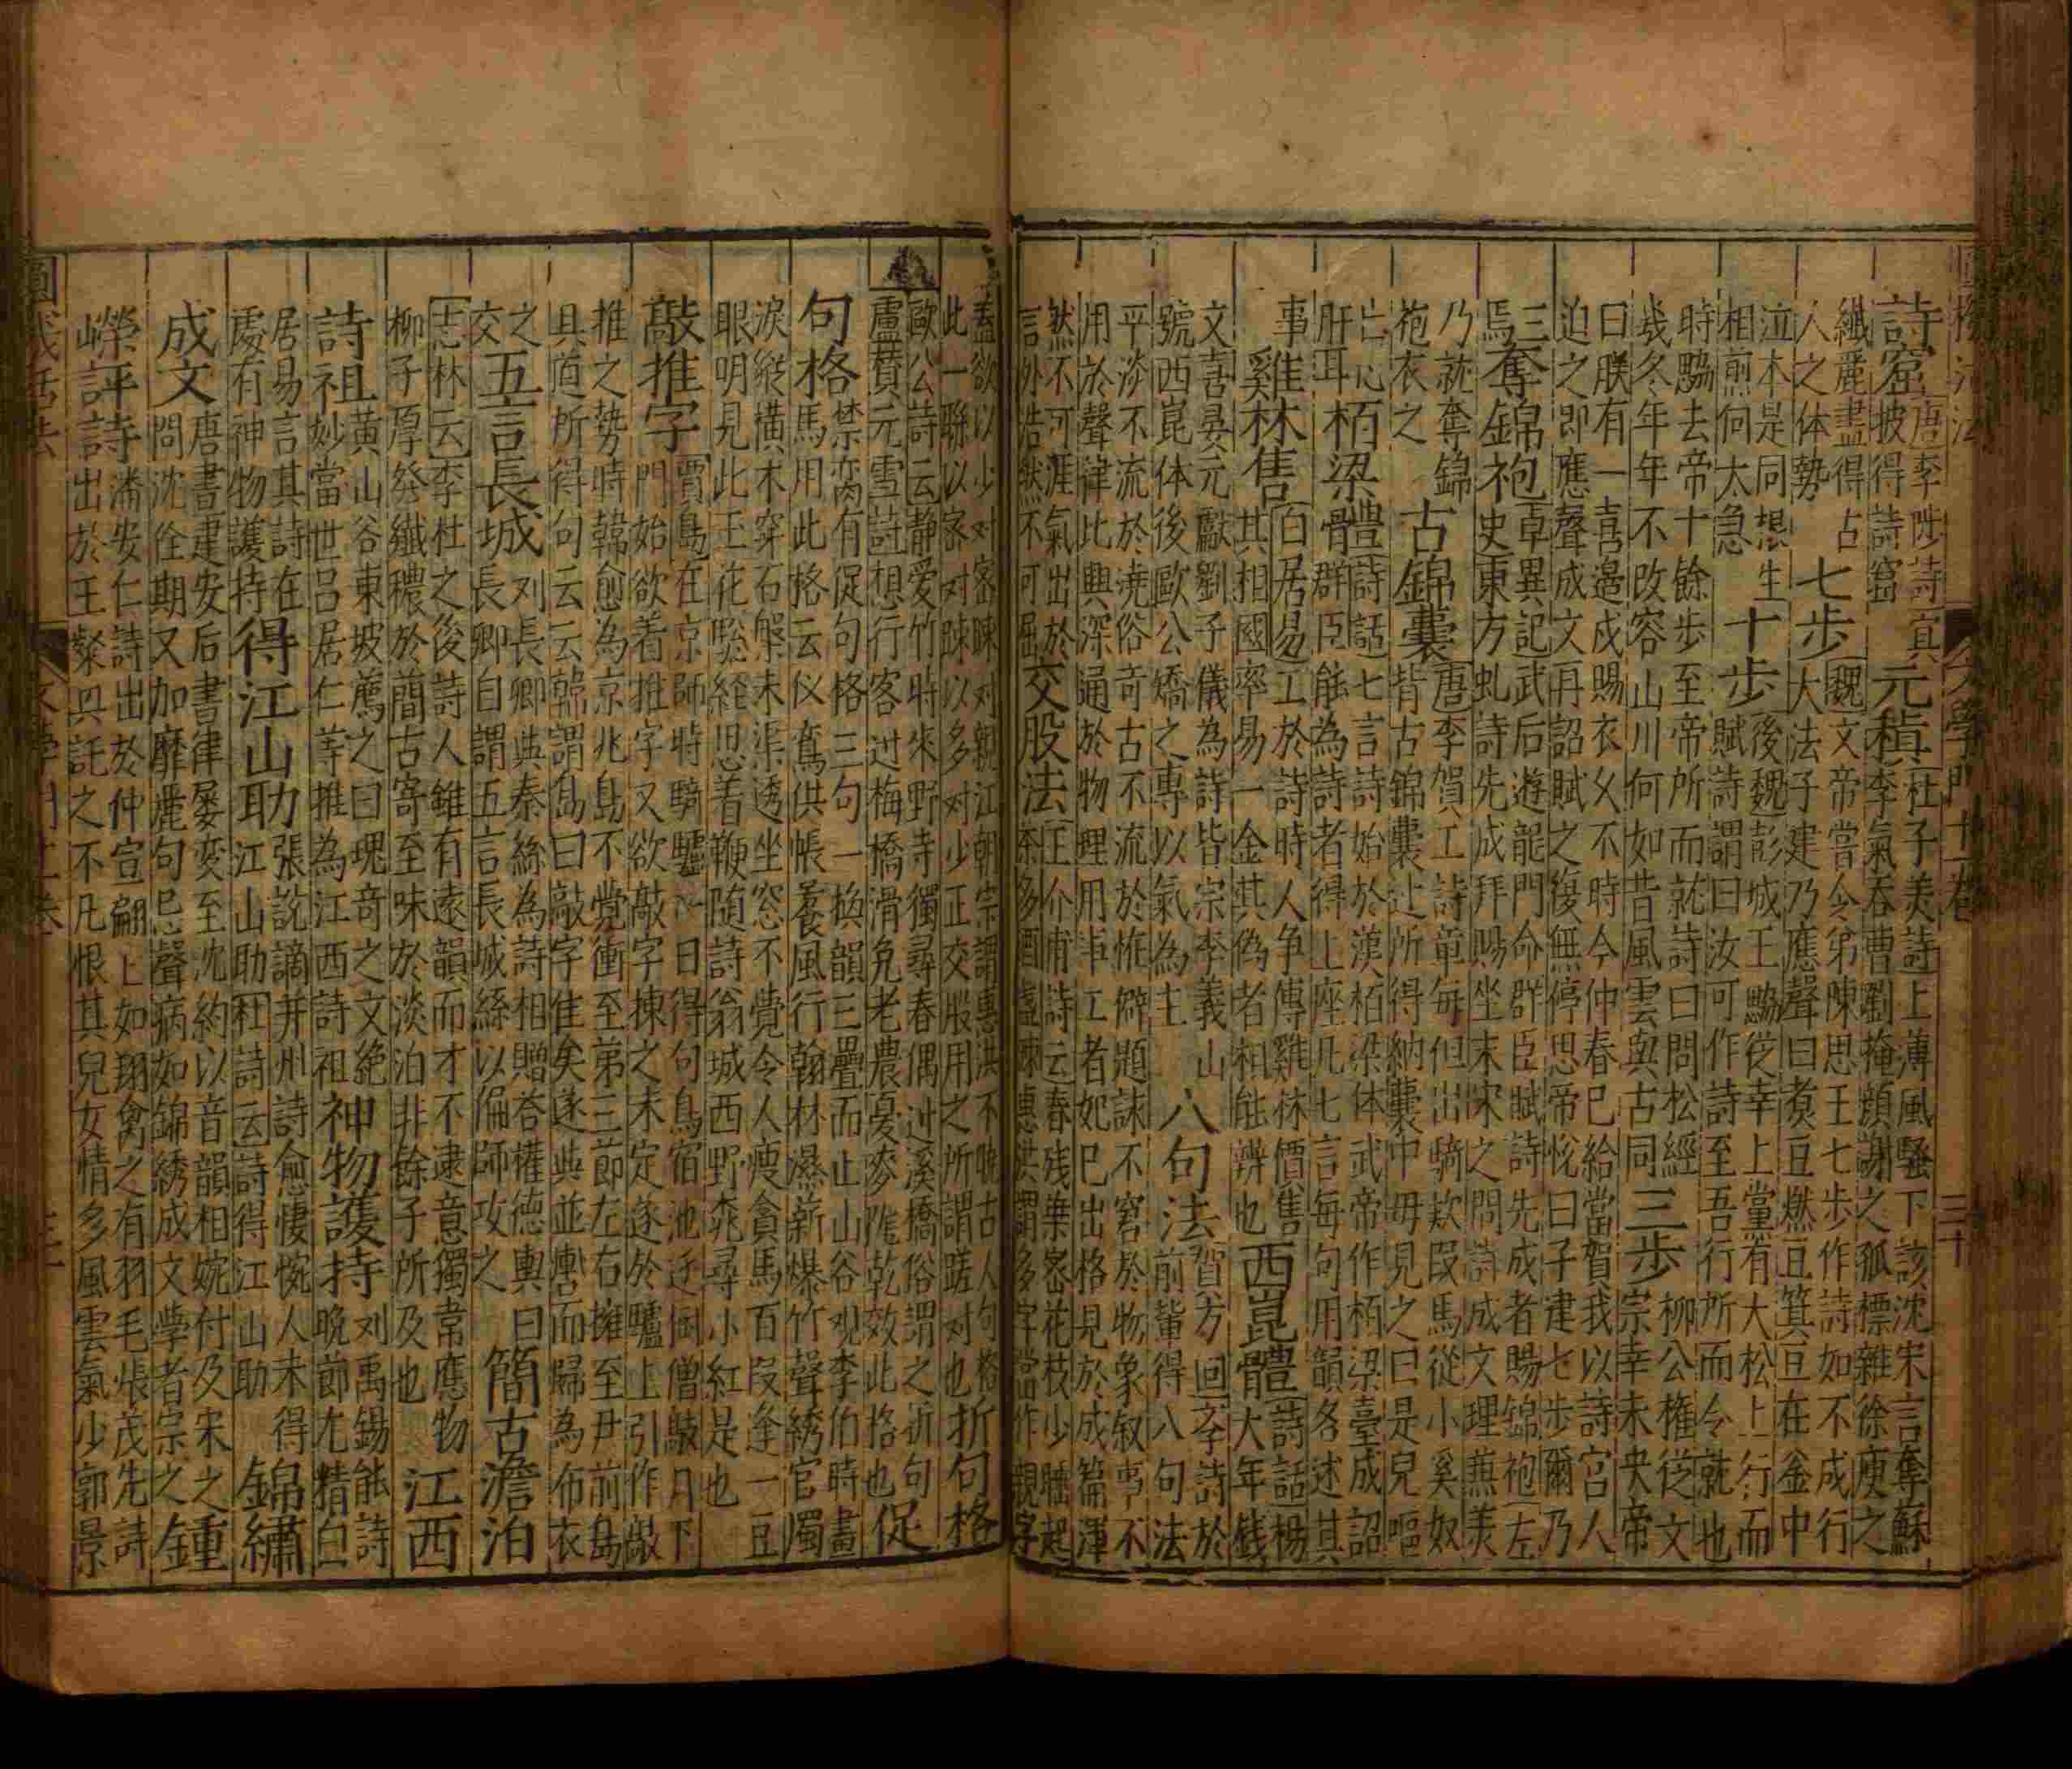 詩窟 唐李陟詩 披得詩窟 元稹 杜子美詩上薄風騷下該沈宋言奪蘇
李氣吞曹劉掩顏謝之孤標雜徐庾之
纖麗盡得古
人之体勢
七步 魏文帝嘗令弟陳思王七步作詩如不成行
大法子建乃應聲曰煑豆燃豆萁豆在釜中
泣本是同根生
相煎何太急
十步 後魏彭城王勰從幸上黨有大松上行而
賦詩謂曰汝可作詩至吾行所而令就也
時勰去帝十餘步至帝所而就詩曰問松經
幾冬年年不改容山川何如昔風雲與古同
三步 柳公權從文
宗幸未央帝
曰朕有一喜邊戍賜衣久不時今仲春已給當賀我以詩宮人
迫之即應聲成文再詔賦之復無停思帝悅曰子建七步爾乃
三
焉
奪錦袍 卓異記武后遊龍門命群臣賦詩先成者賜錦袍左
史東方虬詩先成拜賜坐末宋之問詩成文理兼美
乃就奪錦
袍衣之
古錦囊 唐李賀工詩章每但出騎欵叚馬從小奚奴
背古錦囊所得納囊中毋見之曰是兒嘔
亡心
肝耳
栢梁體 詩話七言詩始於漢栢梁体武帝作栢梁臺成詔
群臣能為詩者得上座凡七言每句用韻各述其
事
雞林售 白居易工於詩時人争傳雞林價售
其相國率易一金其偽者相能辨也
西崑體 詩話楊
大年銭
文喜晏元獻劉子儀為詩皆宗李義山
號西崑体後歐公矯之專以氣為主
八句法 賀方回李詩於
前輩得八句法
平淡不流於澆俗奇古不流於怪僻題詠不窘於物象叙事不
用於聲律比興深通於物理用事工者如已出格見於成篇渾
然不可涯氣出於
言外浩然不可屈
交股法 王介甫詩云春残葉密花枝少睡起
茶多酒盞疎惠洪謂多字當作親字
盖欲以少对密疎对親江朝宗謂惠洪不曉古人句格
此一聮以密对疎以多对少正交股用之所謂蹉对也
折句格
歐公詩云静爱竹時來野寺獨尋春偶过溪橋俗謂之折句
盧贊元雪詩想行客过梅橋滑免老農憂麥隴乾效此格也
促
句格 禁脔有促句格三句一換韻三疊而止山谷观李伯時畫
馬用此格云仪鸞供帳饕風行翰林濕薪爆竹聲綉官燭
淚縱橫木穿石槃未渠透坐窓不覺令人瘦貪馬百叚逢一豆
眼明見此玉花驄経思着鞭随詩翁城西野桃尋小紅是也
敲推字 賈島在京師時騎驢一日得句鳥宿池辺樹僧敲月下
門始欲着推字又欲敲字揀之未定遂於驢上引作敲
推之势時韓愈為京兆島不覺衝至第三節左右擁至尹前島
具道所得句云云韓謂島曰敲字隹矣遂與並轡而歸為布衣
之
交
五言長城 刘長卿與秦絲為詩相贈答權德輿曰
長卿自謂五言長城絲以偏師攻之
簡古澹泊
志林云李杜之後詩人雖有遠韻而才不逮意獨韋應物
柳子厚發纖穠於簡古寄至味於淡泊非餘子所及也
江西
詩祖 黄山谷東坡薦之曰瑰奇之文絶
妙當世吕居仁等推為江西詩祖
神物護持 刘禹錫能詩
晚節尤精白
居易言其詩在
處有神物護持
得江山助 張說謫并州詩愈悽惋人未得
江山助杜詩云詩得江山助
錦繡
成文 唐書建安后書律屡変至沈約以音韻相婉付及宋之
問沈佺期又加靡麗句忌聲病如錦綉成文學者宗之
鍾
嶸評詩 潘安仁詩出於仲宣翩上如翔禽之有羽毛張茂先詩
出於王粲其託之不凡恨其兒女情多風雲氣少郭景